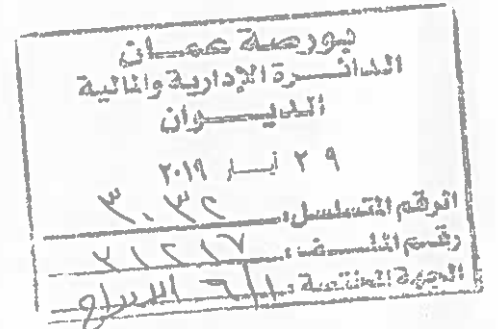 بورصة عمان
الدائرة الإدارية والمالية
الديوان
٢٩ أيار ٢٠١٩
الرقم المتسلسل: ٣٠٣٢
رقم الملف: ٣١٢١٧
الجهة المختصة: الإدراج